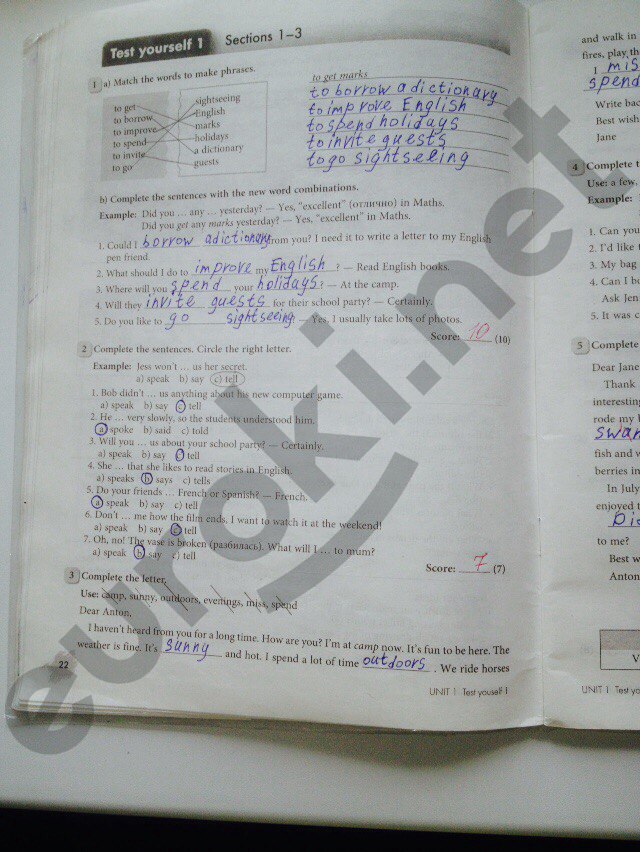 Test yourself 1 Sections 1–3
1 a) Match the words to make phrases.
to get
to borrow
to improve
to spend
to invite
to go
sightseeing
English
marks
holidays
a dictionary
guests
to get marks
to borrow a dictionary
to improve English
to spend holidays
to invite guests
to go sightseeing
b) Complete the sentences with the new word combinations.
Example: Did you ... any ... yesterday? — Yes, “excellent” (отлично) in Maths.
Did you get any marks yesterday? — Yes, “excellent” in Maths.
1. Could I borrow a dictionary from you? I need it to write a letter to my English
pen friend.
2. What should I do to improve my English ? — Read English books.
3. Where will you spend your holidays ? — At the camp.
4. Will they invite guests for their school party? — Certainly.
5. Do you like to go sightseeing — Yes, I usually take lots of photos.
Score: 10 (10)
2 Complete the sentences. Circle the right letter.
Example: Jess won’t ... us her secret.
a) speak b) say c) tell
1. Bob didn’t ... us anything about his new computer game.
a) speak b) say c) tell
2. He ... very slowly, so the students understood him.
a) spoke b) said c) told
3. Will you ... us about your school party? — Certainly.
a) speak b) say c) tell
4. She ... that she likes to read stories in English.
a) speaks b) says c) tells
5. Do your friends ... French or Spanish? — French.
a) speak b) say c) tell
6. Don’t ... me how the film ends. I want to watch it at the weekend!
a) speak b) say c) tell
7. Oh, no! The vase is broken (разбилась). What will I ... to mum?
a) speak b) say c) tell
Score: 7 (7)
3 Complete the letter.
Use: camp, sunny, outdoors, evenings, miss, spend
Dear Anton,
I haven’t heard from you for a long time. How are you? I’m at camp now. It’s fun to be here. The
weather is fine. It’s sunny and hot. I spend a lot of time outdoors . We ride horses
22
UNIT 1 Test youself 1
and walk in
fires, play th
I mis
spend
Write bac
Best wish
Jane
4 Complete t
Use: a few,
Example:
1. Can you
2. I’d like t
3. My bag
4. Can I b
Ask Jen
5. It was c
5 Complete
Dear Jane
Thank
interesting
rode my
swam
fish and w
berries in
In July
enjoyed t
pic
to me?
Best w
Anton
V
UNIT 1 Test yo
euroki.net